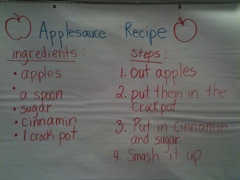 Applesauce Recipe
ingredients:
• apples
• a spoon
• sugar
• cinnamin
• 1 crock pot
Steps:
1. cut apples
2. put them in the
crockpot
3. Put in Cinnamon
and sugar
4. Smash it up